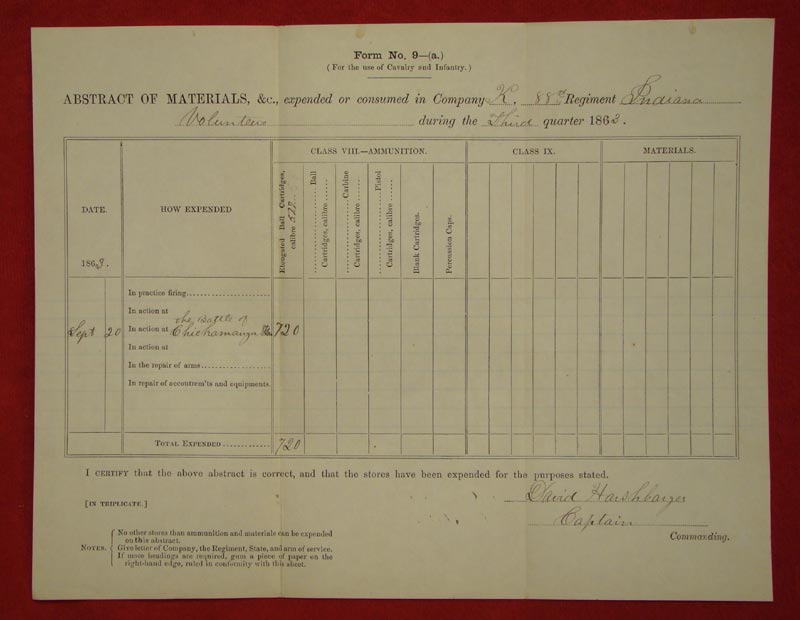 Form No. 9—(a.)
(For the use of Cavalry and Infantry.)
ABSTRACT OF MATERIALS, &c., expended or consumed in Company K, 88th Regiment Indiana
Volunteers during the Third quarter 1863.
DATE.
1863.
HOW EXPENDED
CLASS VIII.—AMMUNITION.
CLASS IX.
MATERIALS.
Elongated Ball Cartridges, calibre
Ball Cartridges, calibre
Carbine Cartridges, calibre
Pistol Cartridges, calibre
Blank Cartridges.
Percussion Caps.
In practice firing
In action at
the Battle of
Sept 20 In action at Chickamauga 720
In action at
In the repair of arms
In repair of accoutrem'ts and equipments.
TOTAL EXPENDED 720
I CERTIFY that the above abstract is correct, and that the stores have been expended for the purposes stated.
[IN TRIPLICATE.]
David Harshbarger
Captain
Commanding.
NOTES.
No other stores than ammunition and materials can be expended
on this abstract.
Give letter of Company, the Regiment, State, and arm of service.
If more headings are required, gum a piece of paper on the
right-hand edge, ruled in conformity with this sheet.